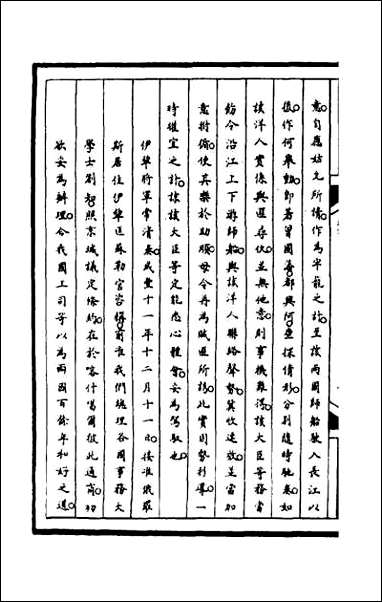 意自應姑允所請作為牢籠之計至該兩國師船駛入長江以
後作何舉動即著曾國荃都興阿密探情形分別隨時馳奏如
該洋人實係與逆尋仗並無他意則事機難得該大臣等務當
飭令沿江上下游師船與該洋人聯絡聲勢冀收速效並當加
意拊循使其樂於助順毋令再為賊匪所誘此實因勢利導一
時權宜之計諒該大臣等定能悉心體會妥為駕馭也
伊犂將軍常清奏咸豐十一年十二月十一日接准俄羅
斯居住伊犂匪蘇勒官咨稱前准我們總理各國事務大
學士劉智照京城議定條約在於喀什噶爾彼此通商初
欲妥為辦理今我國上司等以為兩國百餘年和好之道